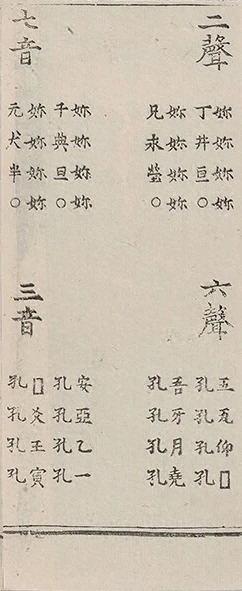 二聲
妳妳妳妳
丁井亘○
妳妳妳妳
兄永瑩○
七音
妳妳妳妳
千典旦○
妳妳妳妳
元犬半○
六聲
五瓦仰□
孔孔孔孔
吾牙月堯
孔孔孔孔
三音
安亞乙一
孔孔孔孔
□爻王寅
孔孔孔孔